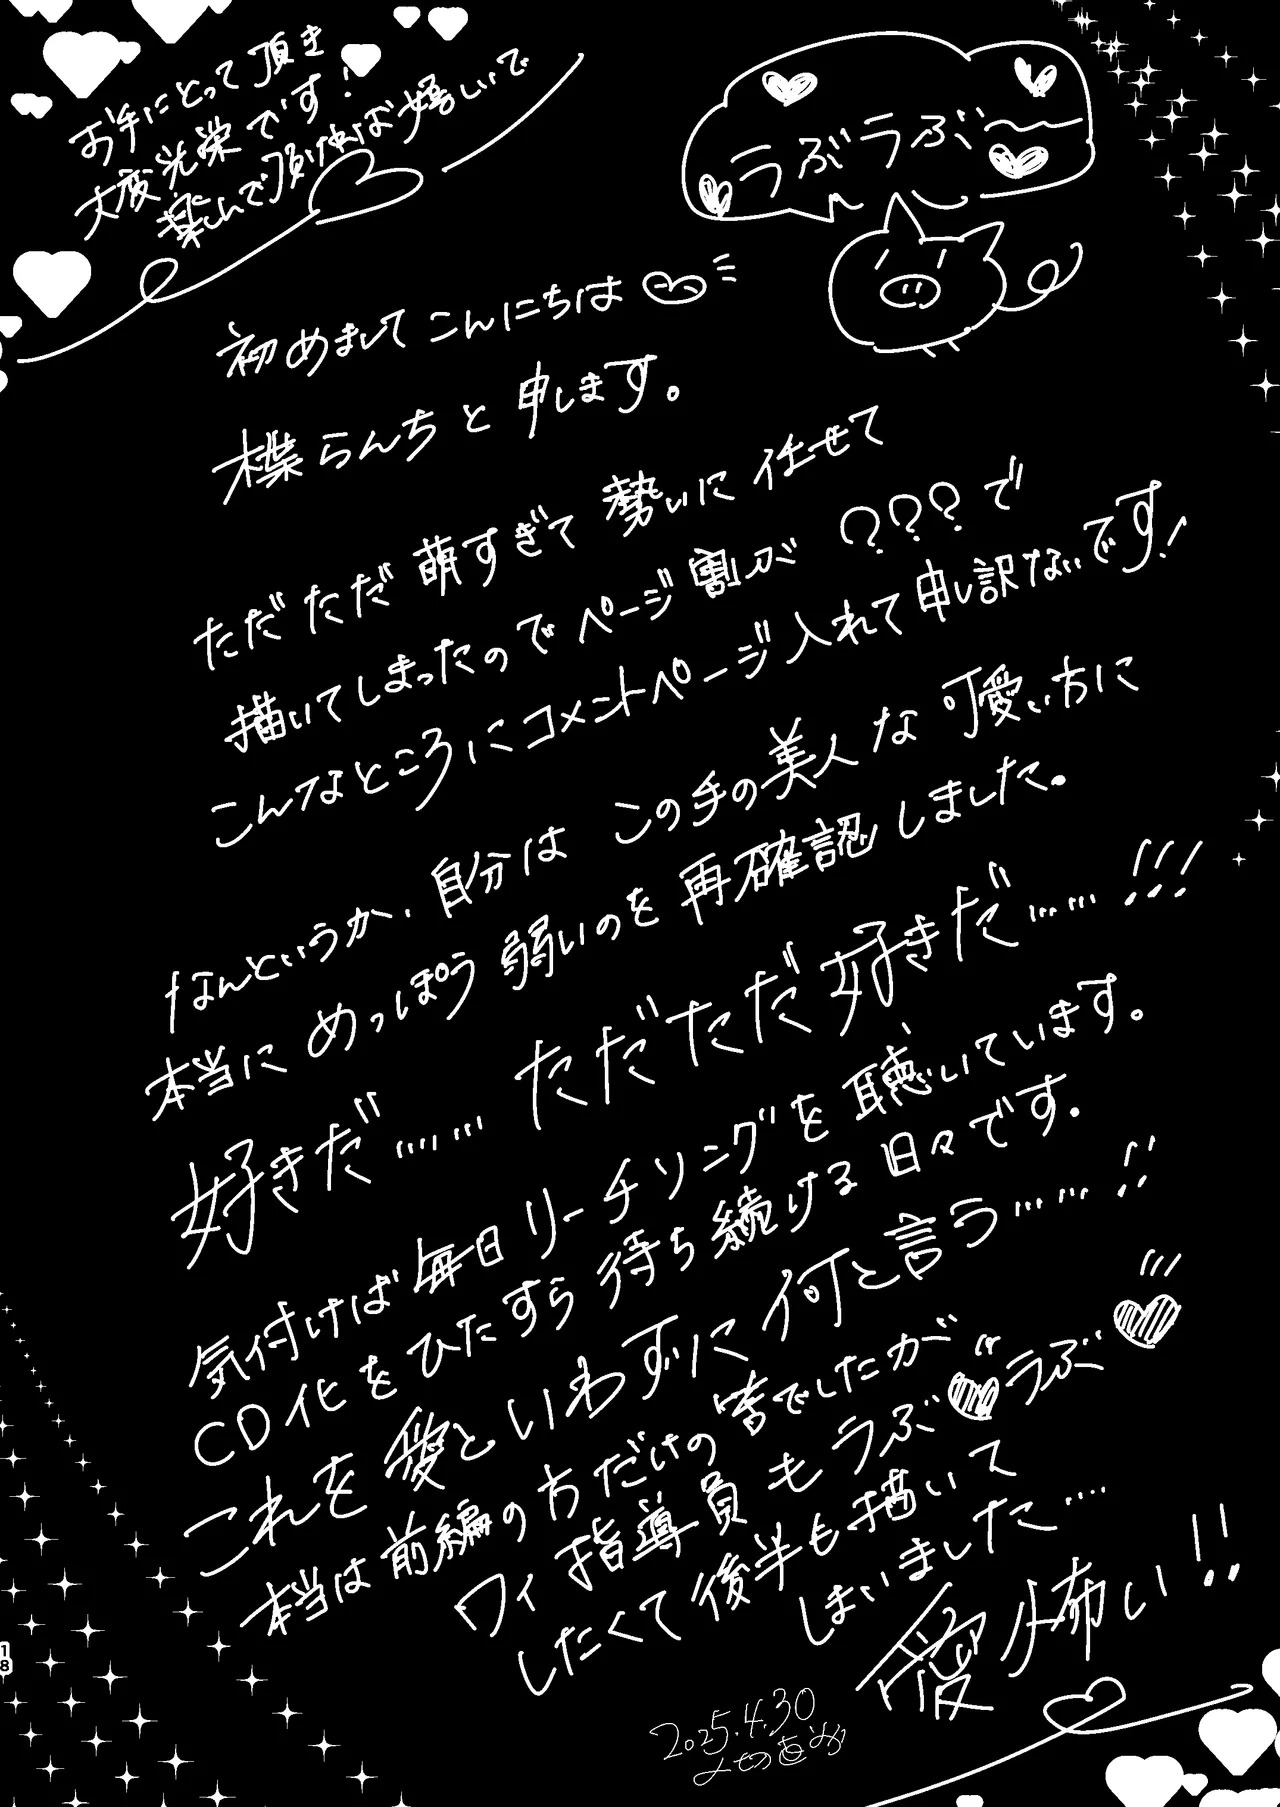 お手にとって頂き
大変光栄です!
楽しんで頂ければ嬉しいで
ラぶラぶ〜
初めましてこんにちは
楪らんちと申します。
ただただ萌すぎて勢いに任せて
描いてしまったのでページ割が???で
こんなところにコメントページ入れて申し訳ないです!
なんというか、自分はこの手の美人な可愛い方に
本当にめっぽう弱いのを再確認しました.
好きだ…… ただただ好きだ……!!!
気付けば毎日リーチソングを聴いています。
CD化をひたすら待ち続ける日々です.
これを愛といわずに何と言う……!!
本当は前編の方だけの筈でしたが
ワイ指導員もラぶ♥ラぶ♥
したくて後半も描いて
しまいました……
愛怖い!!
2025.4.30
18